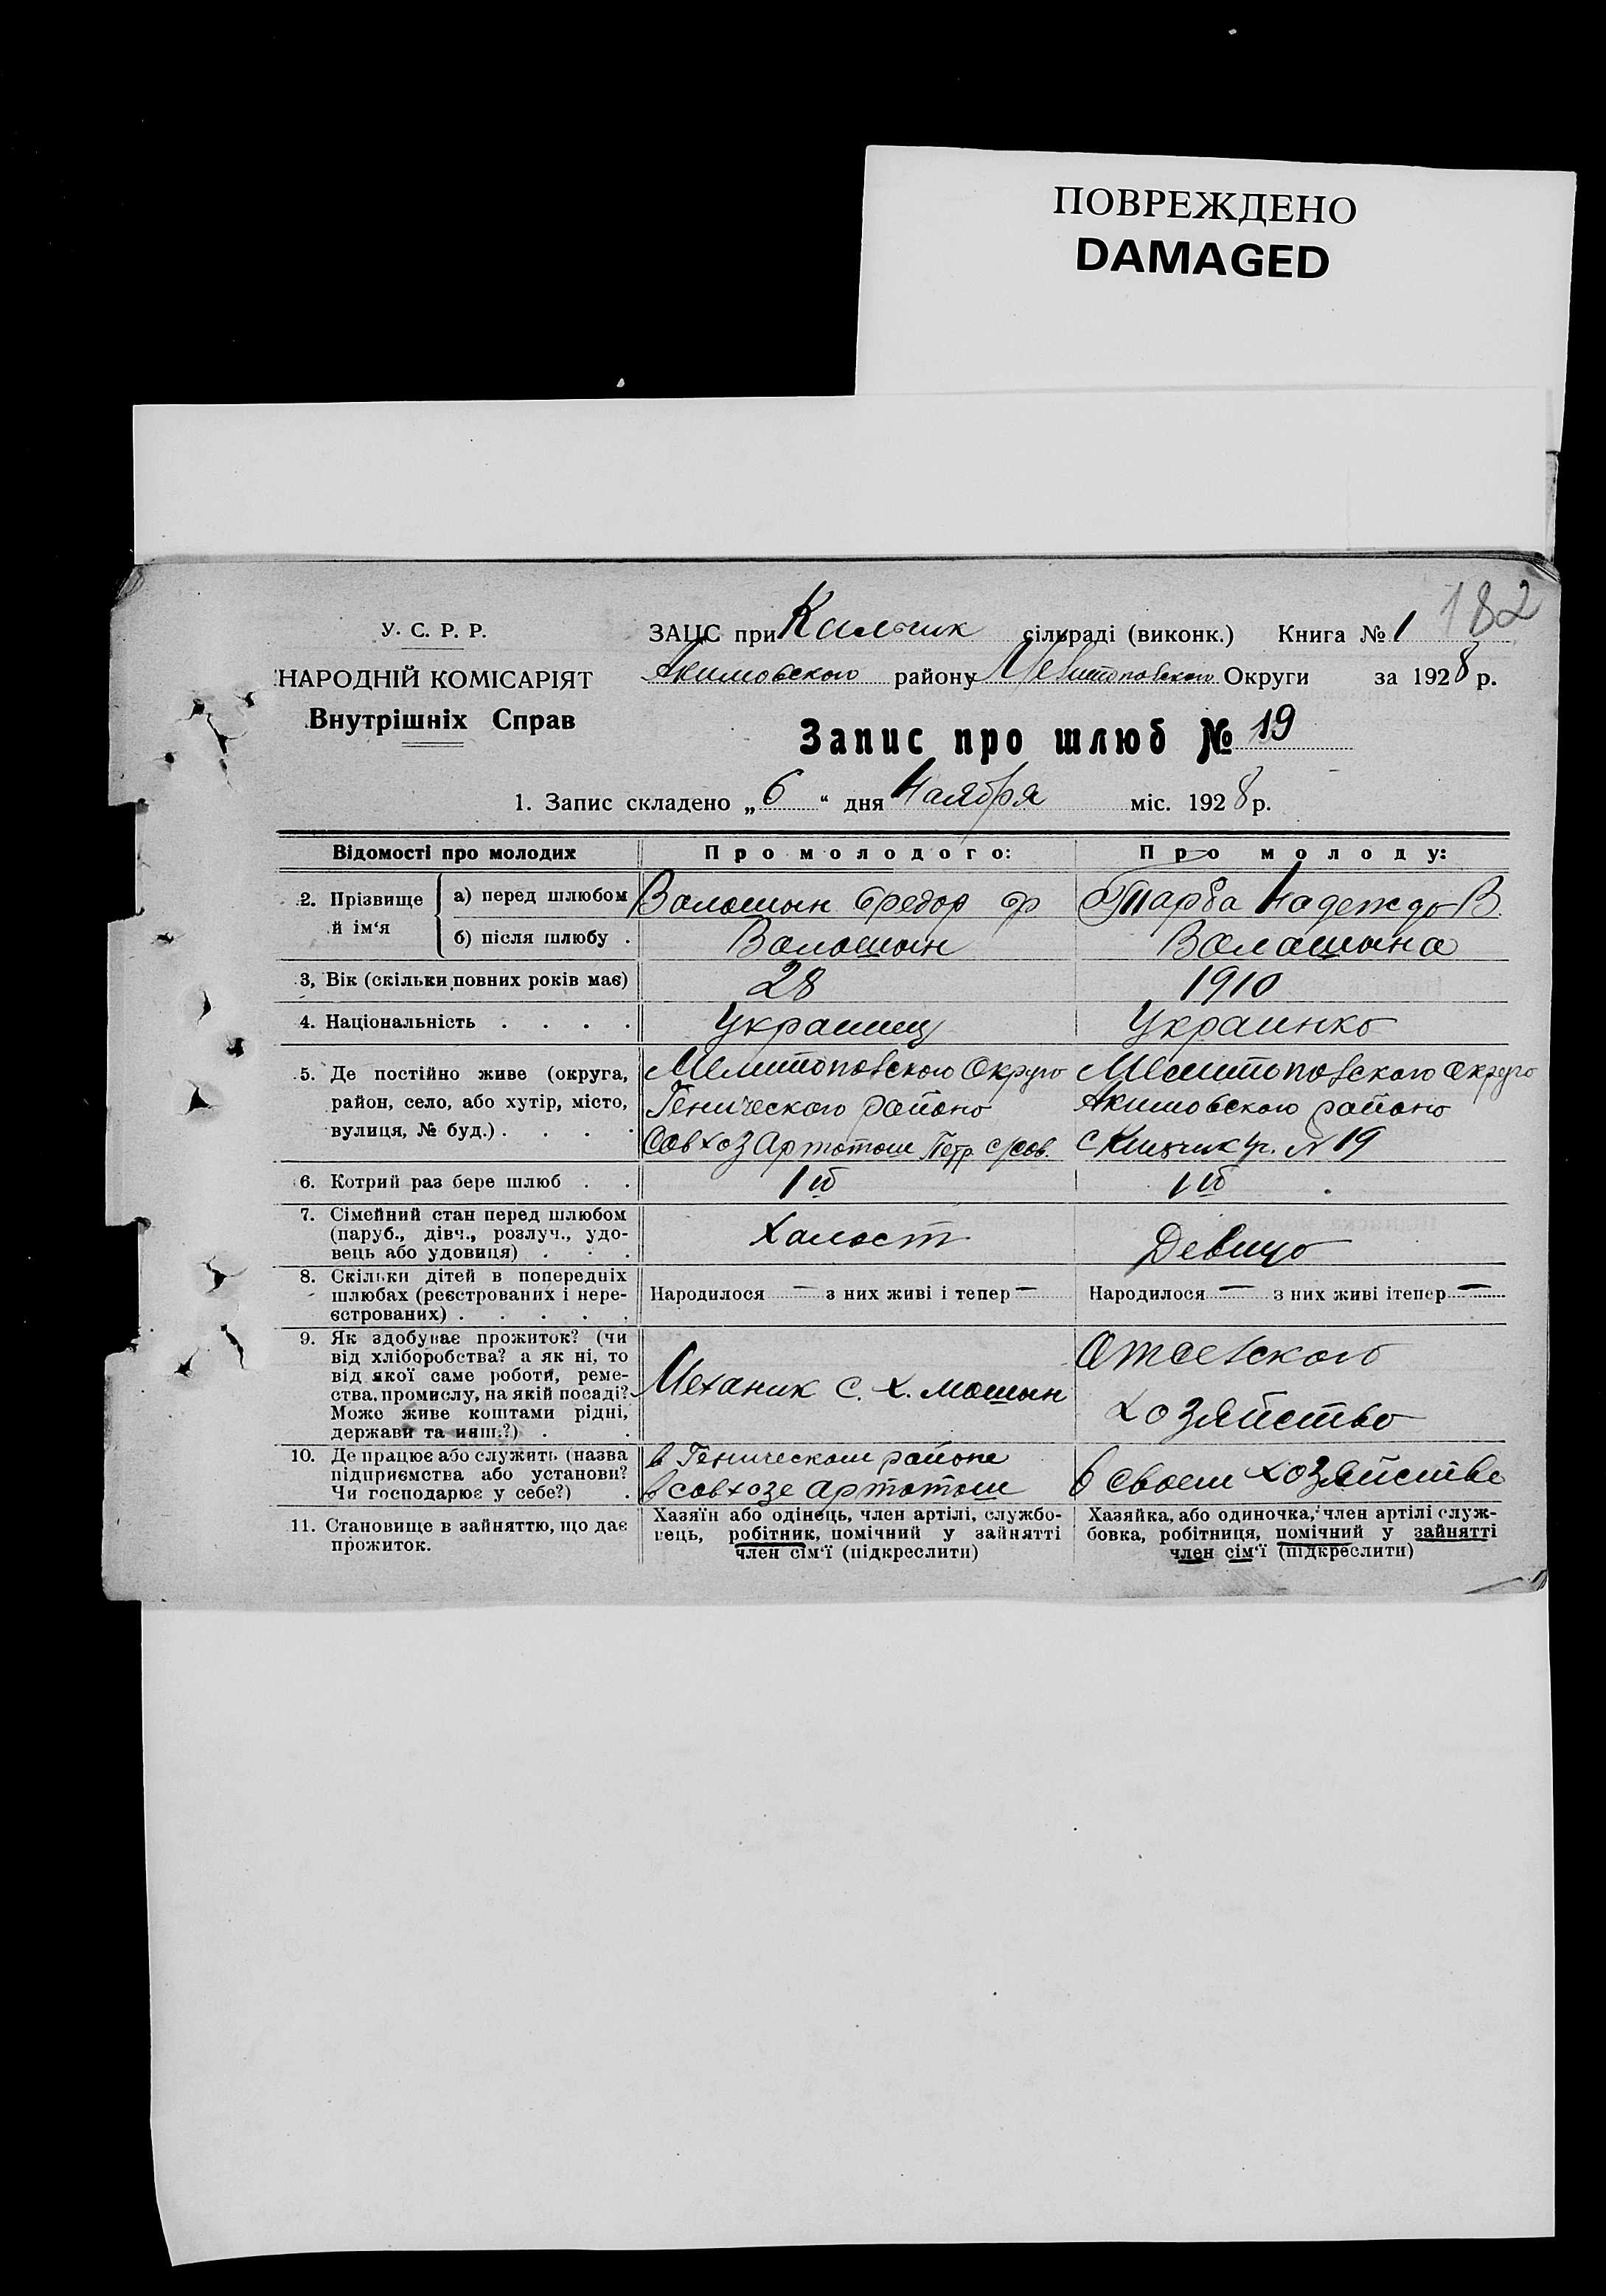 ПОВРЕЖДЕНО
DAMAGED
182
У. С. Р. Р.
НАРОДНІЙ КОМІСАРІЯТ
Внутрішніх Справ
ЗАЦС при сільраді (виконк.) Книга № 1
Акимовского району Мелитополского Округи за 1928 р.
Запис про шлюб № 19
1. Запис складено „6“ дня Наября міс. 1928 р.
Відомості про молодих
Про молодого:
Про молоду:
2. Прізвище й ім‘я
а) перед шлюбом
Валошын Федор Ф
Надежда В.
б) після шлюбу .
Валошын
Валашына
3, Вік (скільки повних років має)
28
1910
4. Національність . . . .
Украинец
Украинка
5. Де постійно живе (округа,
район, село, або хутір, місто,
вулиця, № буд.) . . . .
Мелитополского Округа
Генического района
Совхоз Артоташ Петр. с/сов.
Мелитополского округа
Акимовского района
№ 19
6. Котрий раз бере шлюб . .
1 й
1 й
7. Сімейний стан перед шлюбом
(паруб., дівч., розлуч., удо-
вець або удовиця) . . .
Халост
Девица
8. Скільки дітей в попередніх
шлюбах (реєстрованих і нере-
єстрованих) . . . . .
Народилося — з них живі і тепер —
Народилося — з них живі ітепер —
9. Як здобуває прожиток? (чи
від хліборобства? а як ні, то
від якої саме роботи, реме-
ства, промислу, на якій посаді?
Може живе коштами рідні,
держави та инш.?) . .
Механик с. х. машын
хозяйство
10. Де працює або служить (назва
підприємства або установи?
Чи господарює у себе?) .
в Геническом районе
в совхозе Артоташ
в своем хозяйстве
11. Становище в зайняттю, що дає
прожиток.
Хазяїн або одінець, член артілі, службо-
вець, робітник, помічний у зайнятті
член сім‘ї (підкреслити)
Хазяйка, або одиночка, член артілі служ-
бовка, робітниця, помічний у зайнятті
член сім‘ї (підкреслити)